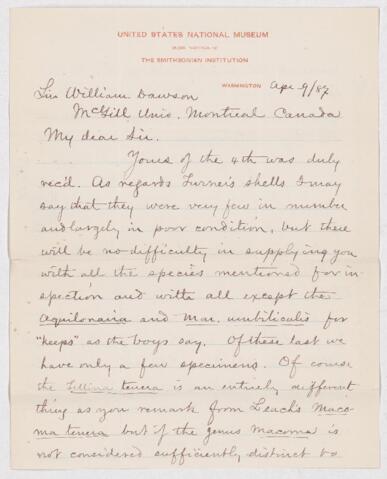 UNITED STATES NATIONAL MUSEUM
UNDER DIRECTION OF
THE SMITHSONIAN INSTITUTION
WASHINGTON Apr 9/87
Sir William Dawson
McGill Univ. Montreal Canada
My dear Sir.
Yours of the 4th was duly
rec'd. As regards Turner's shells I may
say that they were very few in number
and largely in poor condition, but there
will be no difficulty in supplying you
with all the species mentioned for in-
spection and with all except the
Aquilonaria and Mar. umbilicalis for
"keeps" as the boys say. Of these last we
have only a few specimens. Of course
the Tellina tenera is an entirely different
thing as you remark from Leach's Maco-
ma tenera but if the genus Macoma is
not considered sufficiently distinct to